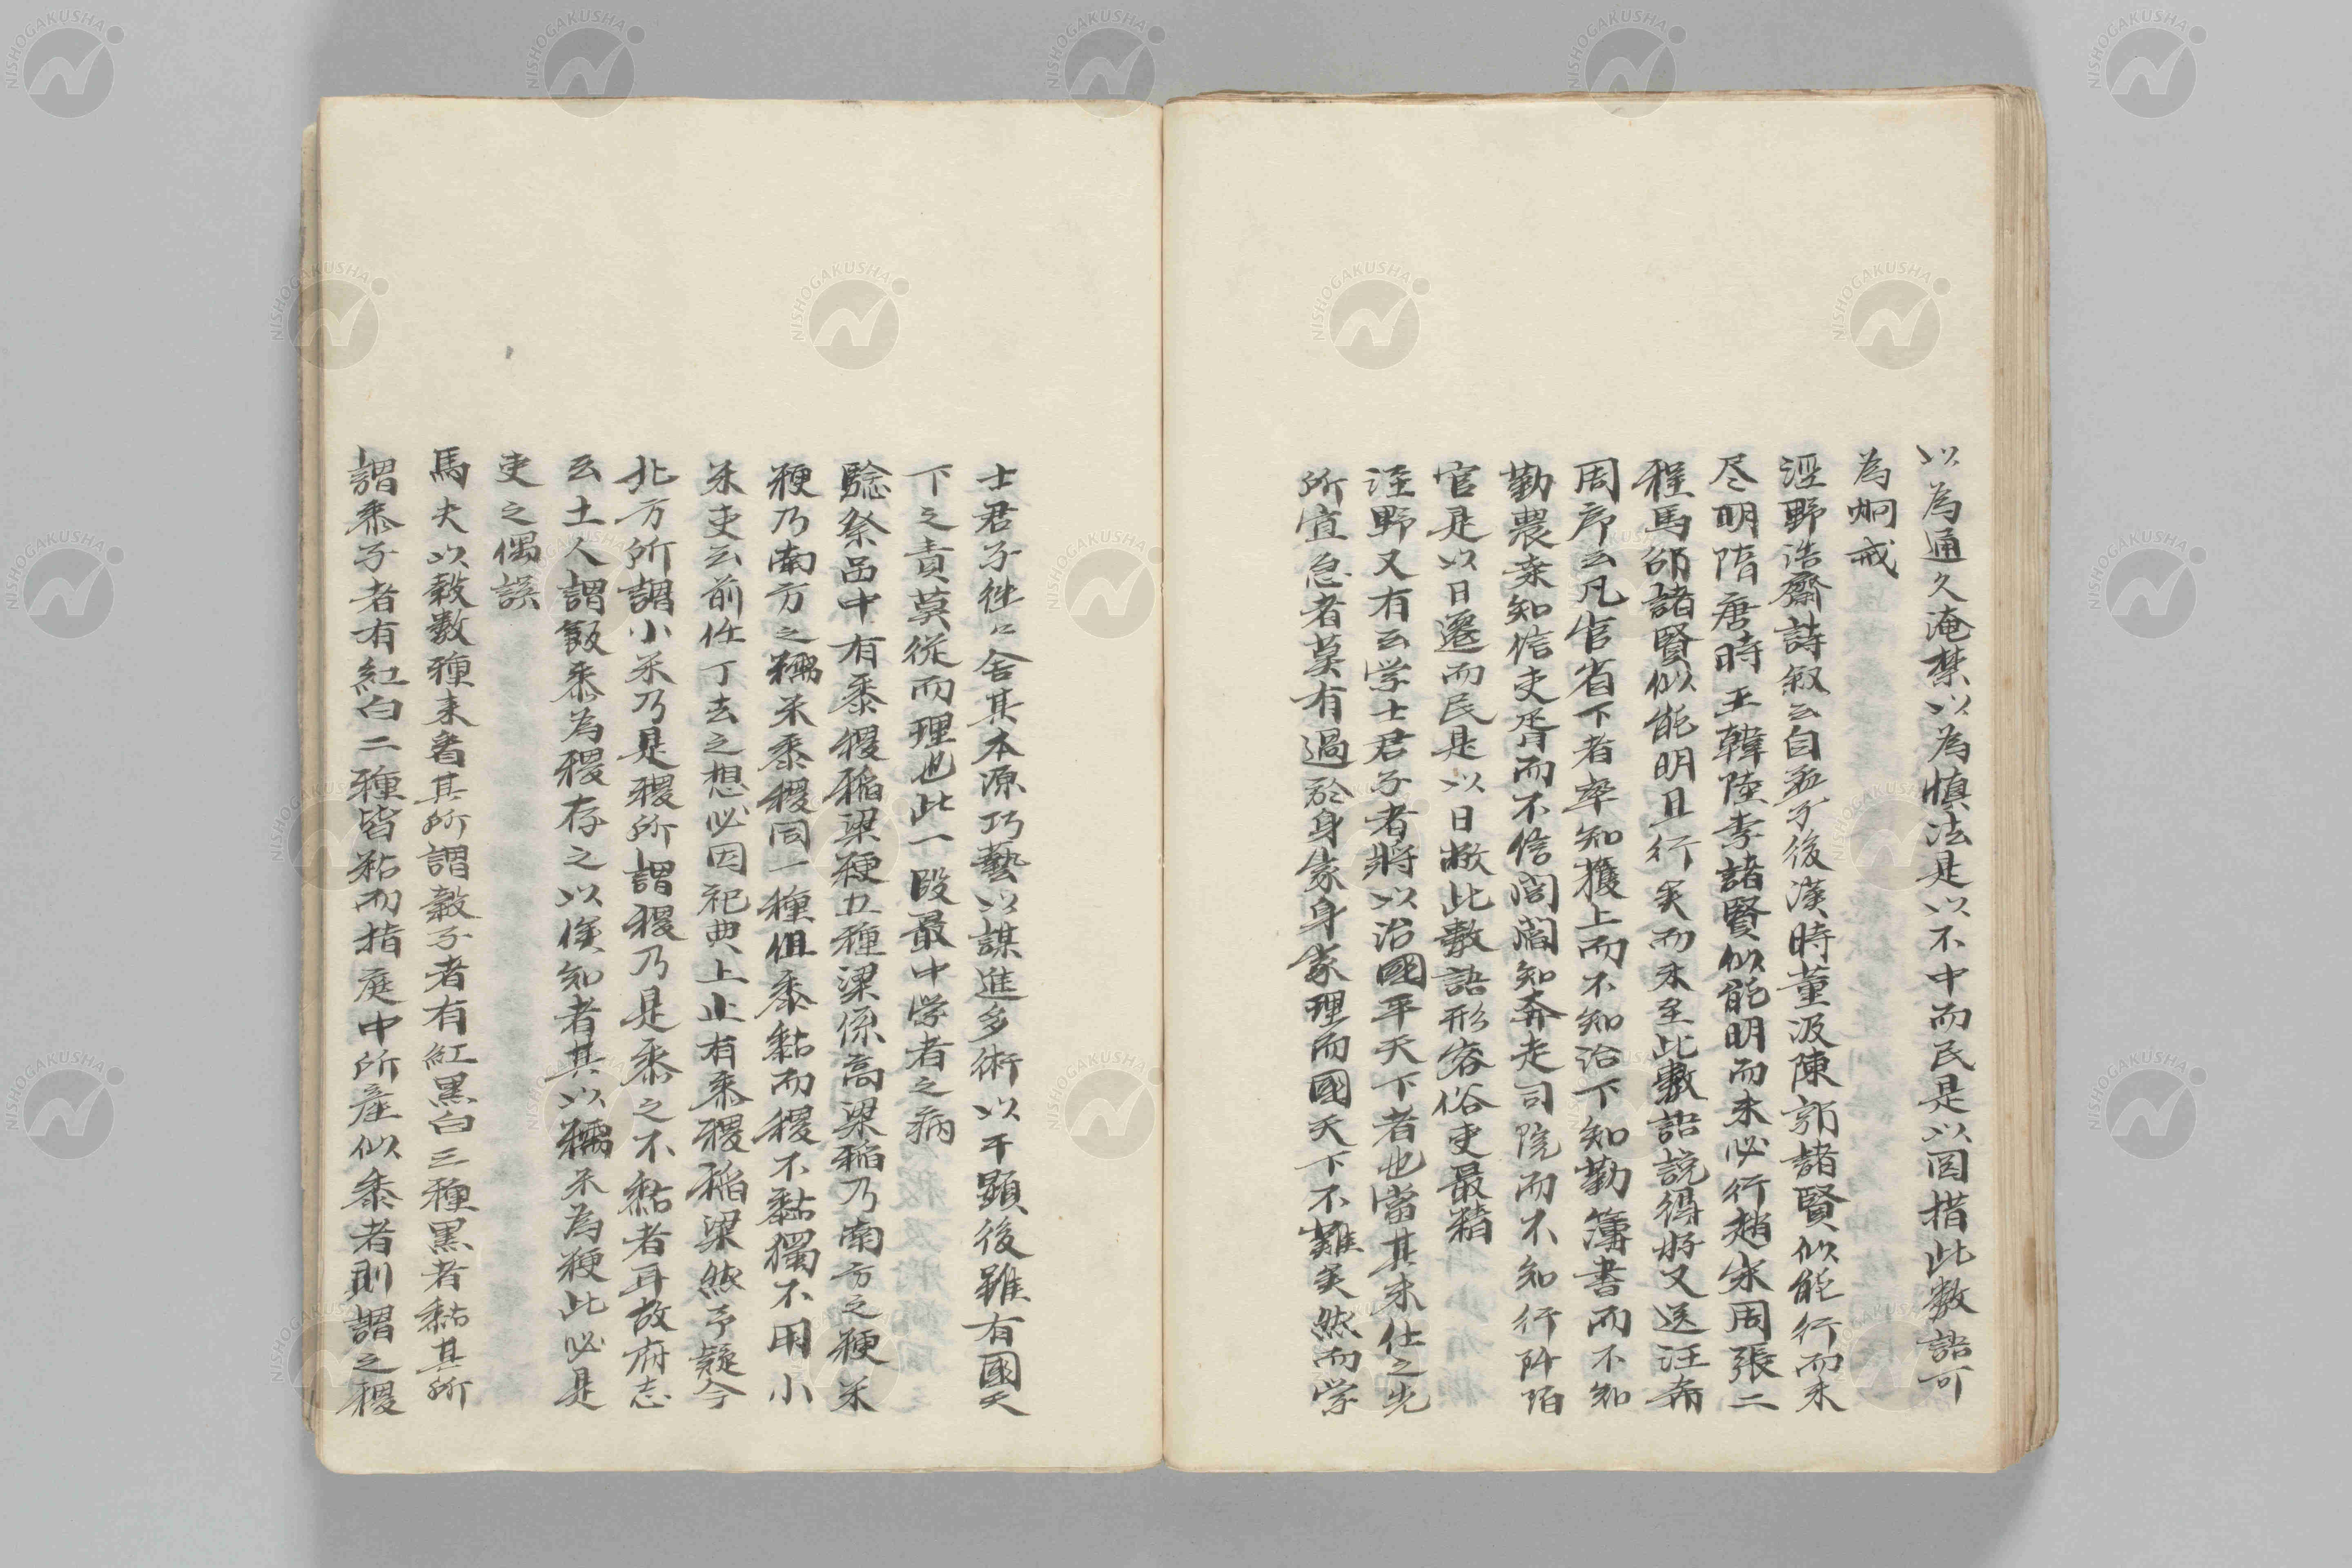 以為通久淹禁以為慎法是以不中而民是以囹措此数語可
為炯戒
涇野浩齋詩叙云自孟子後漢時董汲陳郭諸賢似能行而未
尽明隋唐時王韓陸李諸賢似能明而未必行趙宋周張二
程馬邵諸賢似能明且行矣而未至此數語説得好又送汪希
周序云凡官省下者率知獲上而不知治下知勤簿書而不知
勤農桒知信吏胥而不信閭閻知奔走司院而不知行阡陌
官是以日遷而民是以日敝此數語形容俗吏最精
涇野又有云学士君子者將以治國平天下者也當其未仕之先
所宜急者莫有過於身家身家理而國天下不難矣然而学
士君子徃々舍其本源巧藝以謀進多術以干顯後雖有國天
下之責莫從而理也此一段最中学者之病
驗祭品中有黍稷稲粱粳五種粱係高粱稲乃南方之粳米
粳乃南方之糯米黍稷同一種但黍黏而稷不黏獨不用小
米吏云前任丁去之想必因祀典上止有黍稷稲粱然予疑今
北方所謂小米乃是稷所謂稷乃是黍之不黏者耳故府志
云土人謂飯黍為稷存之以俟知者其以糯米為粳此必是
吏之偶誤
馬夫以穀数種来看其所謂穀子者有紅黒白三種黒者黏其所
謂黍子者有紅白二種皆粘而指庭中所産似黍者則謂之稷